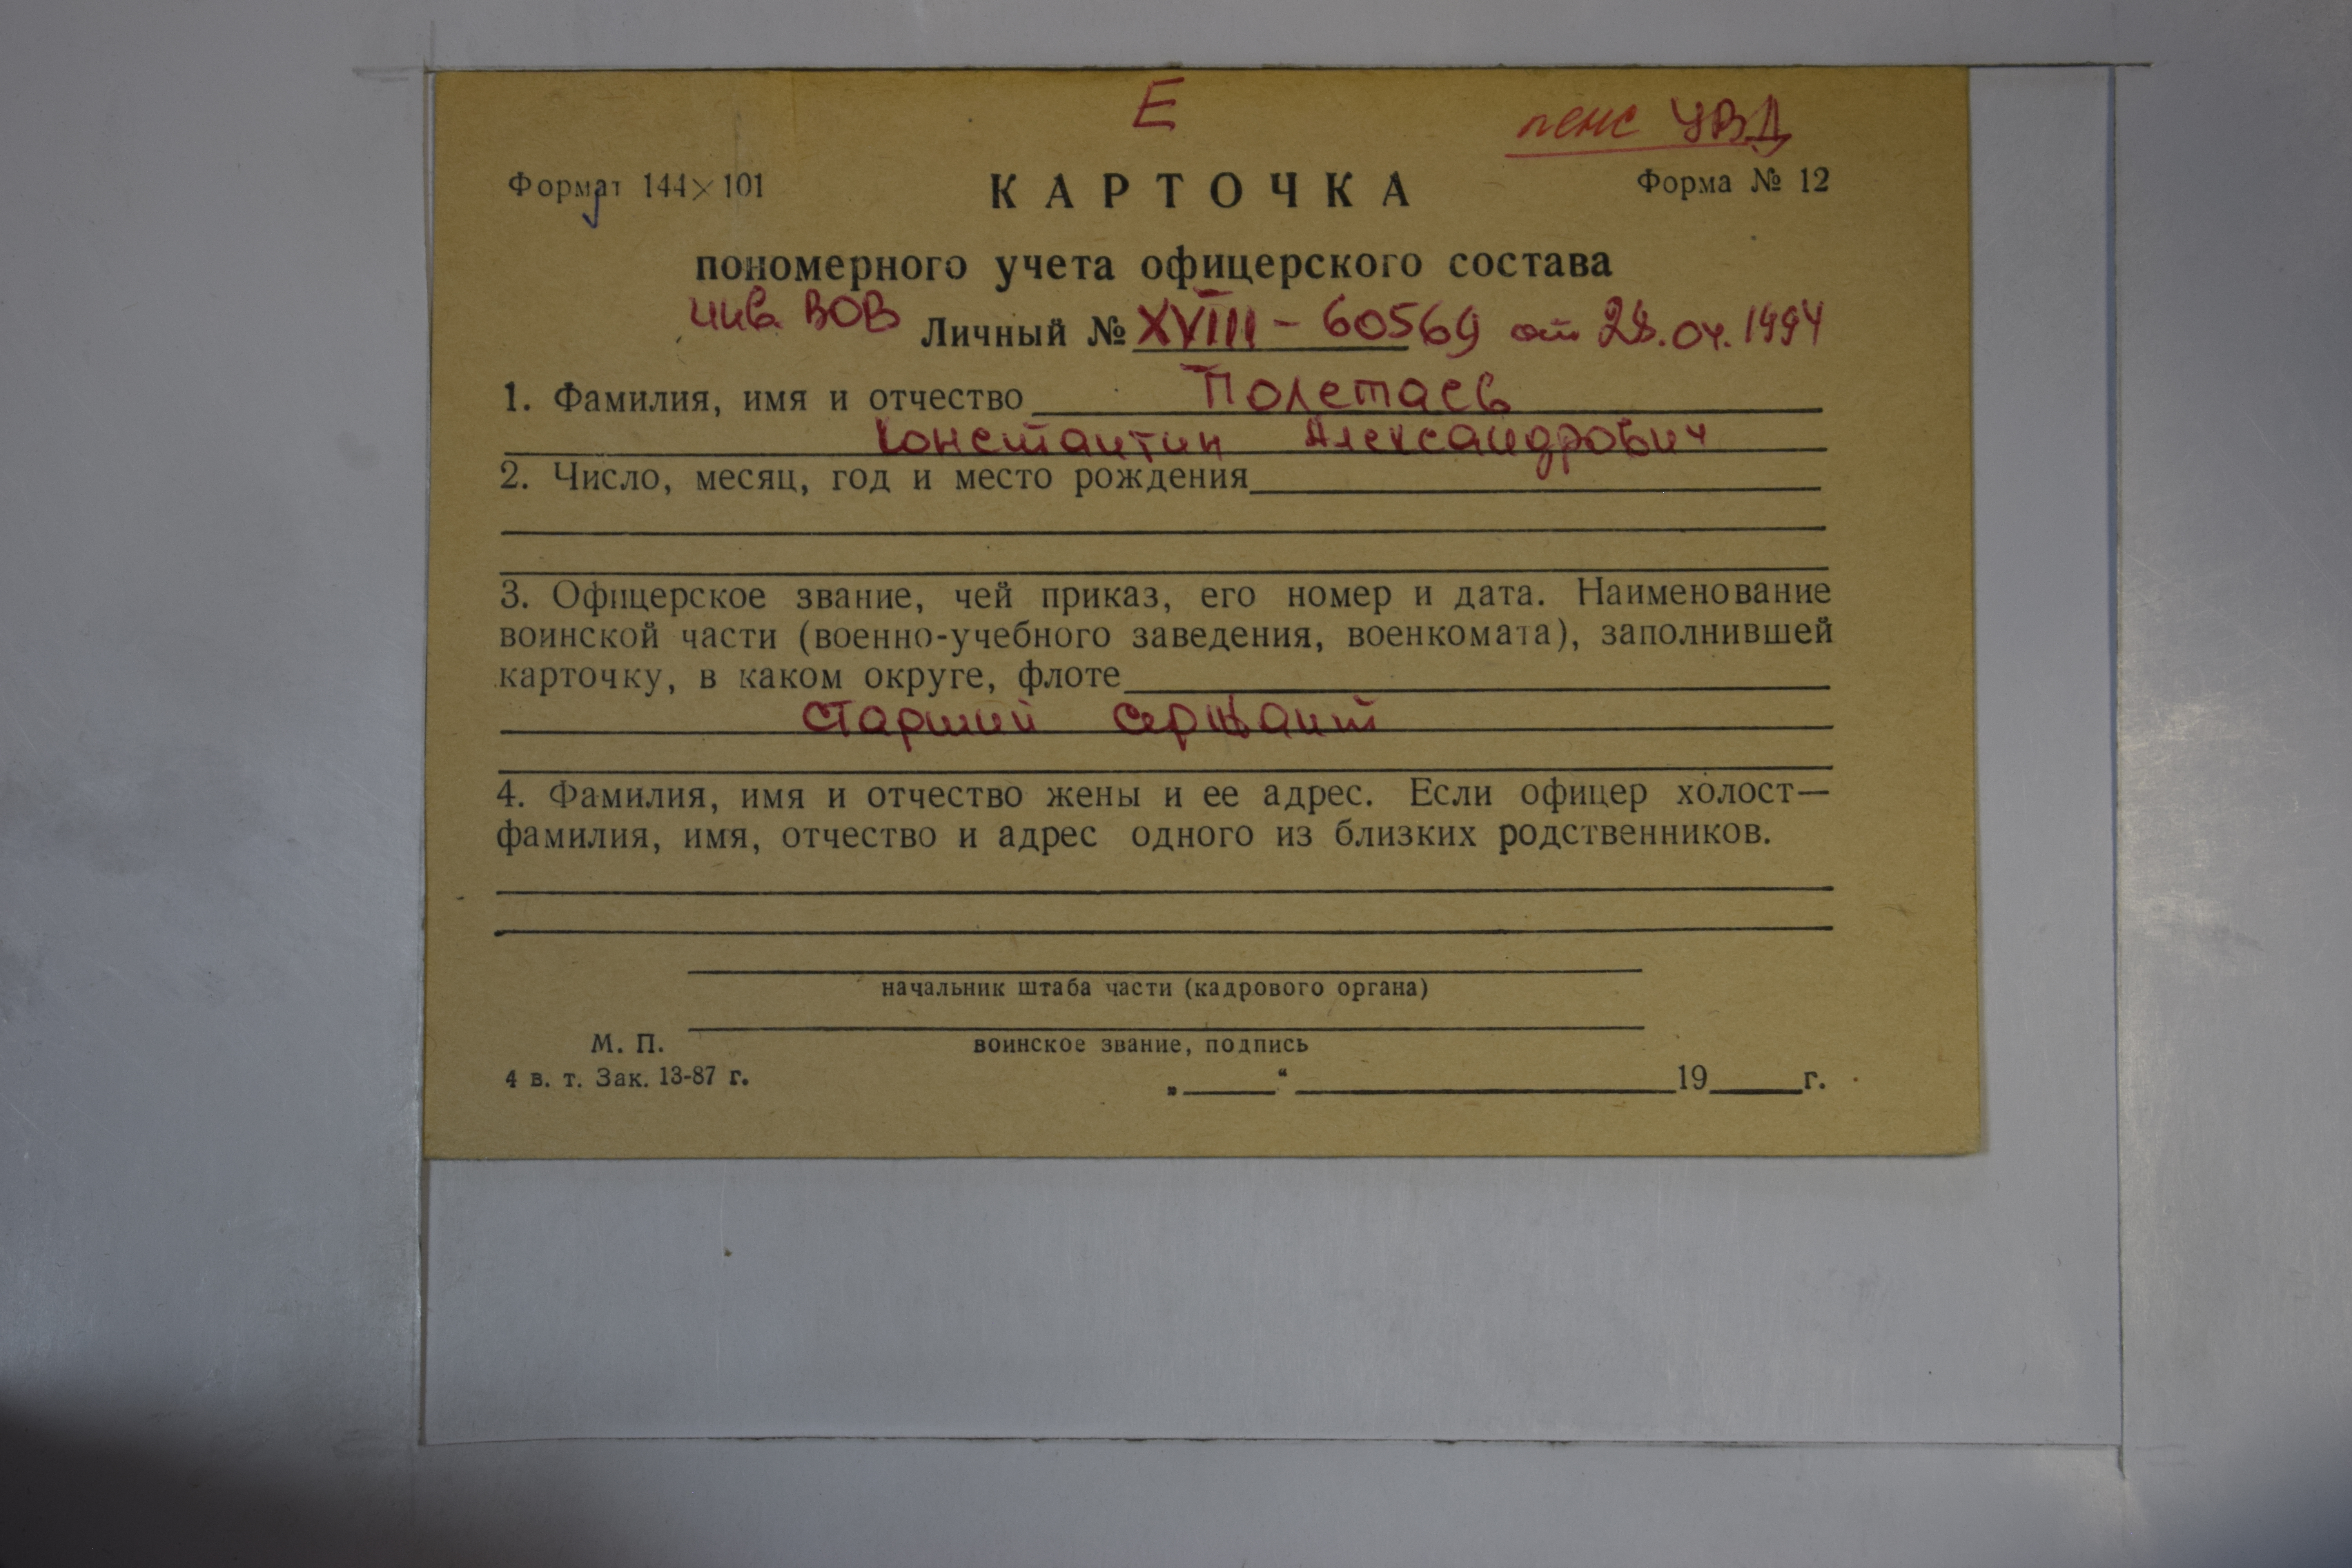 Е
пенс УВД
Формат 144×101
КАРТОЧКА
Форма № 12
пономерного учета офицерского состава
инв. ВОВ
Личный № XVIII - 60569 от 28.04.1994
1. Фамилия, имя и отчество Полетаев
Константин Александрович
2. Число, месяц, год и место рождения
3. Офицерское звание, чей приказ, его номер и дата. Наименование
воинской части (военно-учебного заведения, военкомата), заполнившей
карточку, в каком округе, флоте
старший сержант
4. Фамилия, имя и отчество жены и ее адрес. Если офицер холост—
фамилия, имя, отчество и адрес одного из близких родственников.
начальник штаба части (кадрового органа)
М. П.
воинское звание, подпись
4 в. т. Зак. 13-87 г.
„____“ ________ 19____г.